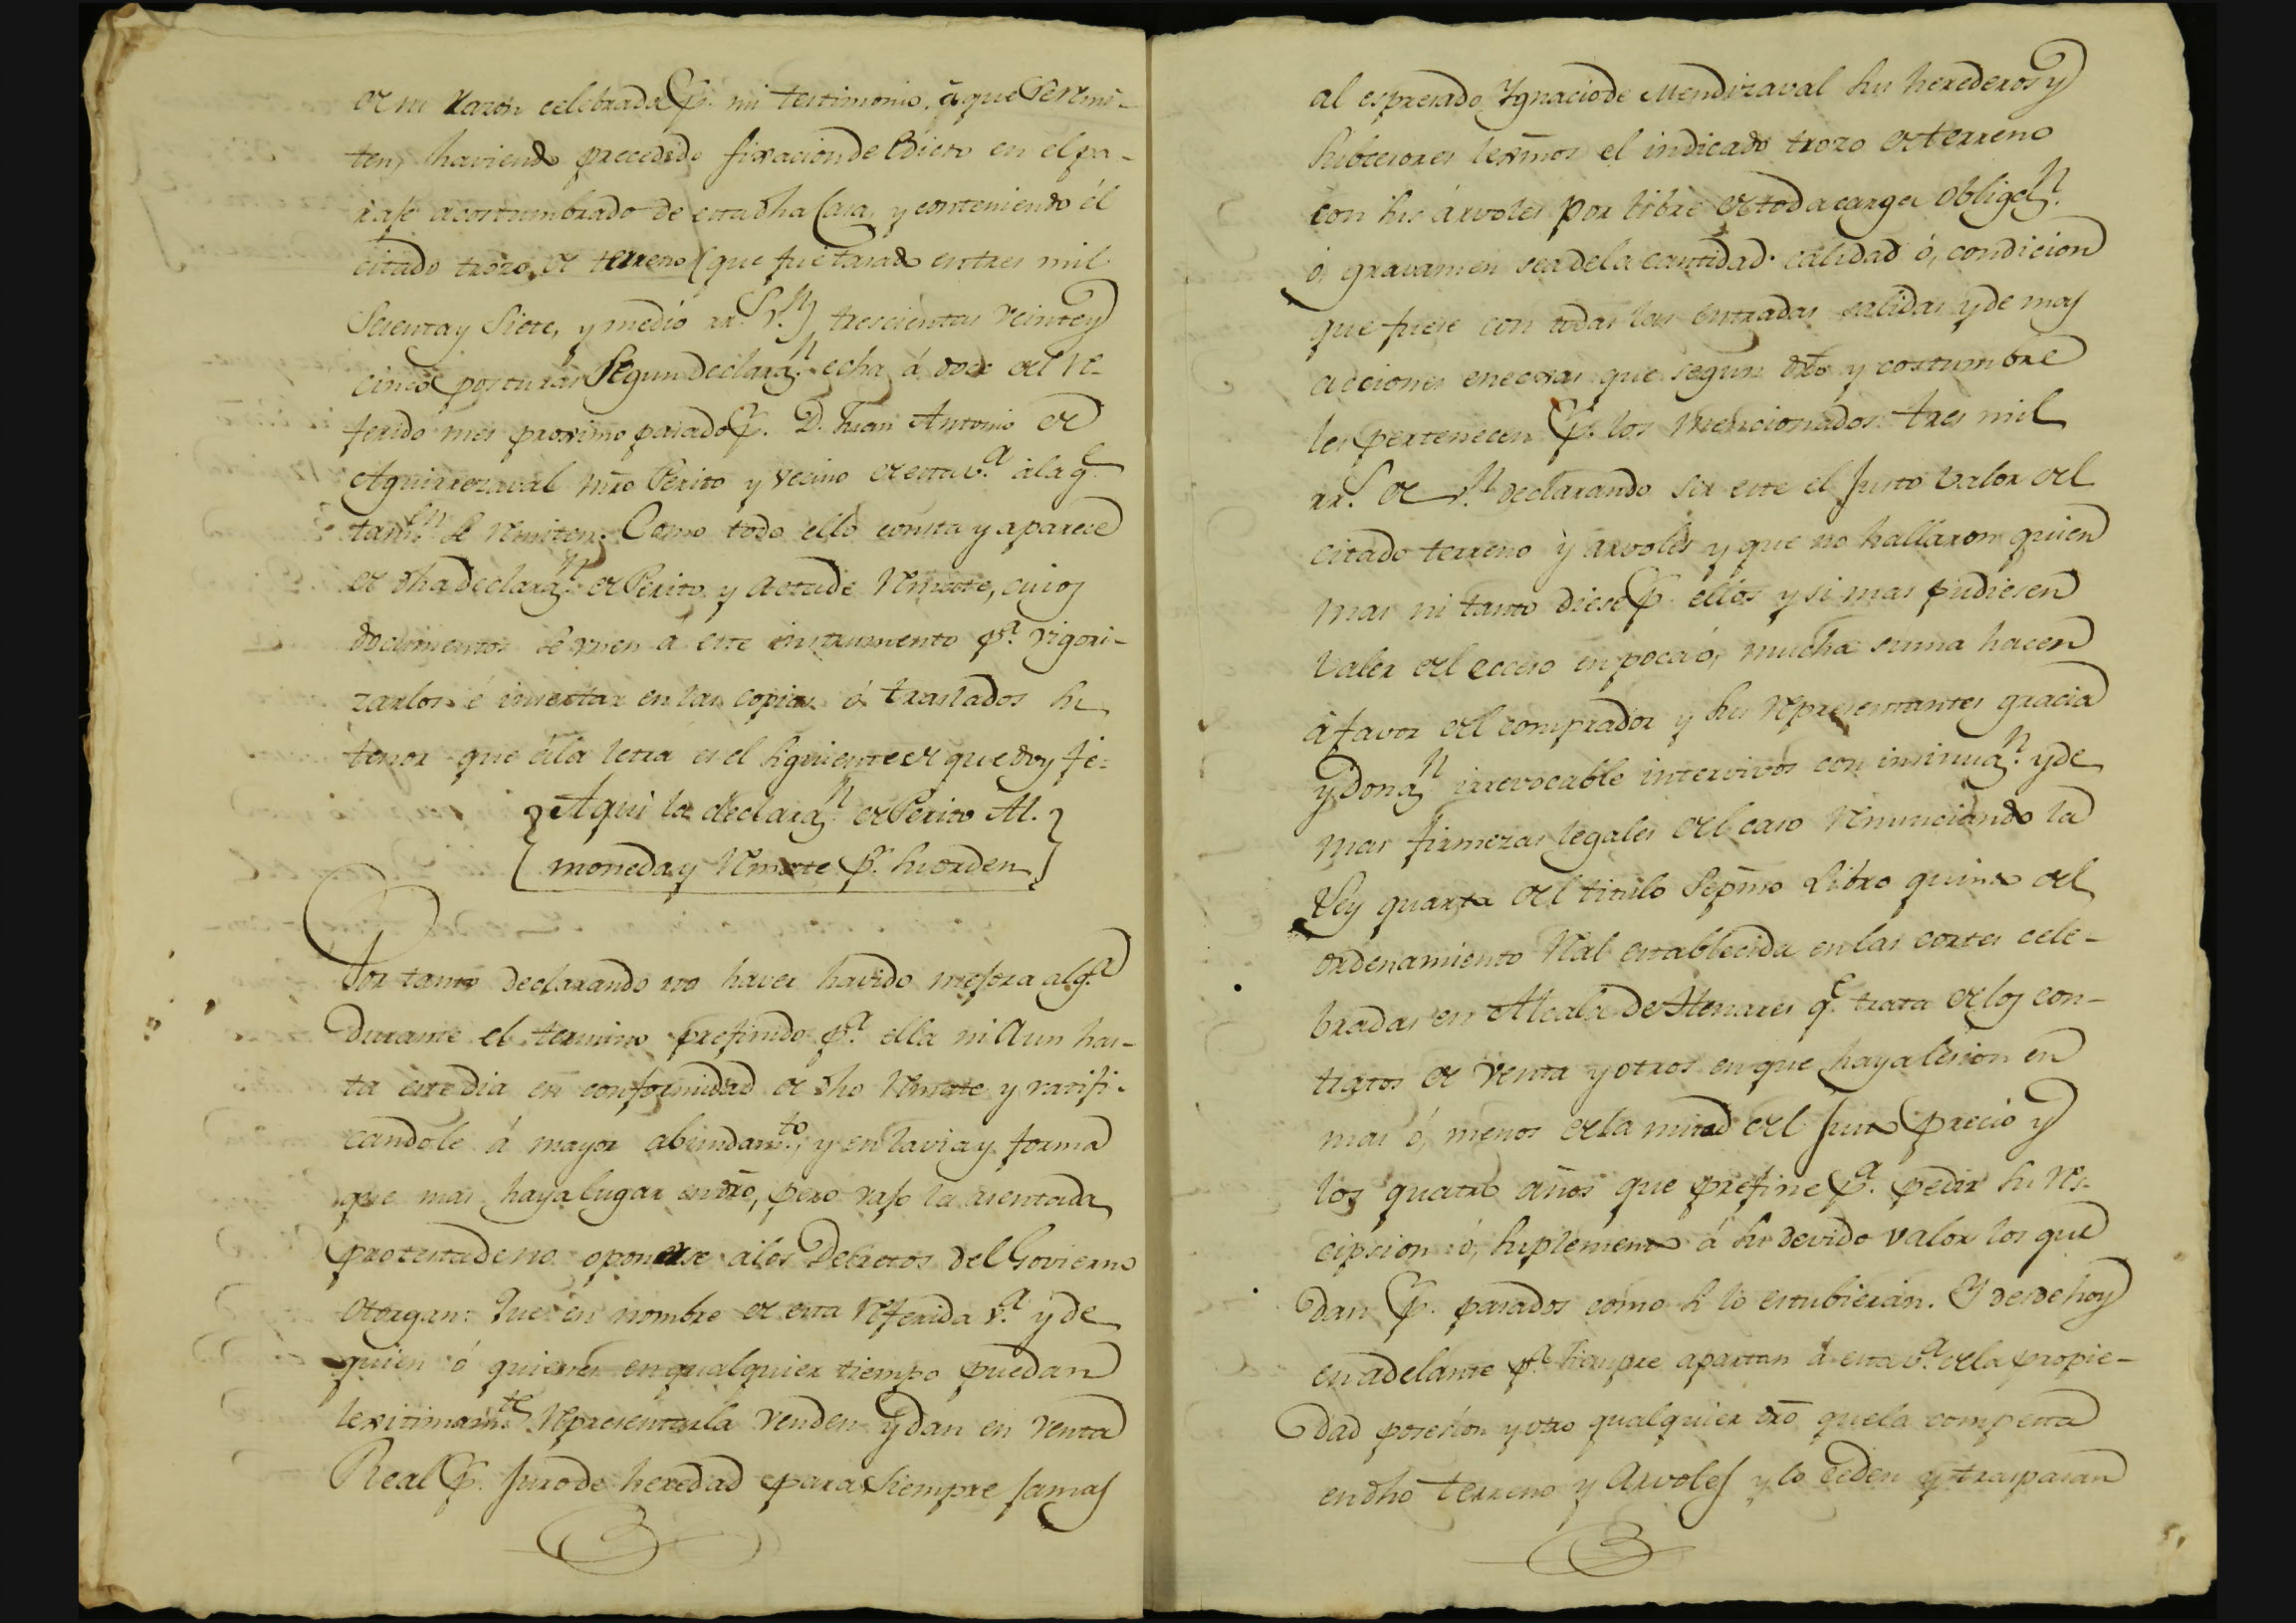 de su razon celebrada p.r mi testimonio, á que se remi-
ten, haviendo precedido fixacion de Edicto en el pa-
raje acostumbrado de esta dha Casa, y conteniendo él
citado trozo de terreno (que fue tasado en tres mil
Sesenta y Siete, y medio rr.s v.n) trescientas veinte y
cinco posturas Segun declara.n echa á doce del re-
ferido mes proximo pasado p.r D. Juan Antonio de
Aguirrezaval Mrō Perito y vecino de esta v.a á la q.e
tam.en se remiten. Como todo ello consta y aparece
de dha declara.n de Perito y Acta de Remate, cuios
documentos se unen á este instrumento p.a vigori-
zarlos é insertar en las copias ó traslados su
tenor que á la letra es el siguiente de que doy fé=
Aqui la declara.n de Perito Al-
moneda y Remate p.r su orden
Por tanto declarando no haver havido mejora alg.a
durante el termino prefinido p.a ella ni Aun has-
ta este dia en conformidad de dho Remate y ratifi-
candole á mayor abundam.to, y en la via y forma
que mas haya lugar en drō, pero vajo la asentada
protesta de no oponerse á los Decretos del Govierno
Otorgan: Que en nombre de esta referida v.a y de
quien ó quienes en qualquier tiempo puedan
lexitimam.te representarla venden y dan en venta
Real p.r Juro de heredad para siempre jamas
al espresado Ygnacio de Mendizaval sus herederos y
subcesores lexmōs el indicado trozo de terreno
con sus árvoles por libre de toda carga obligac.n
ó, gravamen sea de la cantidad. calidad ó, condicion
que fuese con todas las entradas salidas y de mas
acciones anecsas que segun drō y costumbre
les pertenecen p.r los mencionados tres mil
rr.s de v.n declarando ser este el Justo Valor del
citado terreno y arvoles y que no hallaron quien
mas ni tanto diese p.r ellos y si mas pudiesen
valer del eceso en poca ó, mucha suma hacen
á favor del comprador y sus representantes gracia
y dona.n irrevocable intervivos con insinua.n y de
mas firmezas legales del caso renunciando la
Ley quarta del titulo Sepmō Libro quinto del
ordenamiento Ral establecida en las cortes cele-
bradas en Alcala de Henares q.e trata de los con-
tratos de venta y otros en que haya lesion en
mas ó, menos de la mitad del Justo precio y
los quatro años que prefine p.a pedir su res-
cipcion ó, suplemento á su devido valor los que
dan p.r pasados como si lo estubieran. Y desde hoy
en adelante p.a siempre apartan á esta v.a de la propie-
dad posesion y otro qualquier drō que la competa
en dho terreno y Arvoles y lo ceden y traspasan